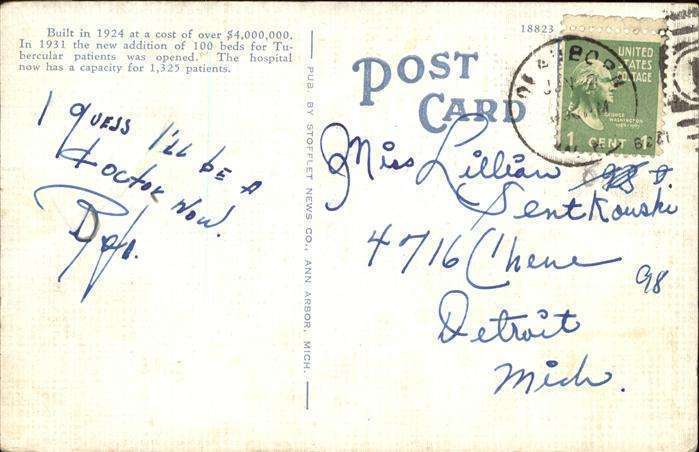 Built in 1924 at a cost of over $4,000,000.
In 1931 the new addition of 100 beds for Tu-
bercular patients was opened. The hospital
now has a capacity for 1,325 patients.
I GUESS I'LL BE A
DOCTOR NOW.
PUB. BY STOFFLET NEWS CO., ANN ARBOR, MICH.
18823
POST
CARD
UNITED
STATES
POSTAGE
GEORGE
WASHINGTON
1 CENT 1
Miss Lillian
Sentkouski
4716 Chene
98
Detroit
Mich.